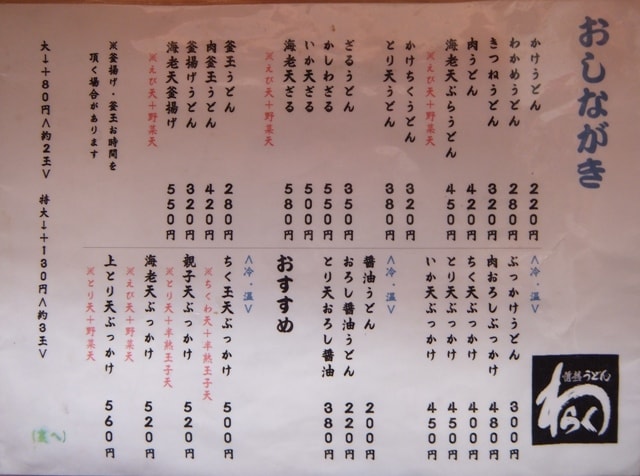 おしながき
かけうどん 220円
わかめうどん 280円
きつねうどん 320円
肉うどん 420円
海老天ぷらうどん 450円
※えび天+野菜天
かけちくうどん 320円
とり天うどん 380円
ざるうどん 350円
かしわざる 550円
いか天ざる 500円
海老天ざる 580円
※えび天+野菜天
釜玉うどん 280円
肉釜玉うどん 420円
釜揚げうどん 320円
海老天釜揚げ 550円
※えび天+野菜天
※釜揚げ・釜玉お時間を
頂く場合があります
<冷・温>
ぶっかけうどん 300円
肉おろしぶっかけ 480円
ちく天ぶっかけ 400円
とり天ぶっかけ 450円
いか天ぶっかけ 450円
<冷・温>
醤油うどん 200円
おろし醤油うどん 220円
とり天おろし醤油 380円
おすすめ
<冷・温>
ちく玉天ぶっかけ 500円
※ちくわ天+半熟玉子天
親子天ぶっかけ 520円
※とり天+半熟玉子天
海老天ぶっかけ 520円
※えび天+野菜天
上とり天ぶっかけ 560円
※とり天+野菜天
大→+80円<約2玉> 特大→+130円<約3玉>
(裏へ)
うどん
わらく